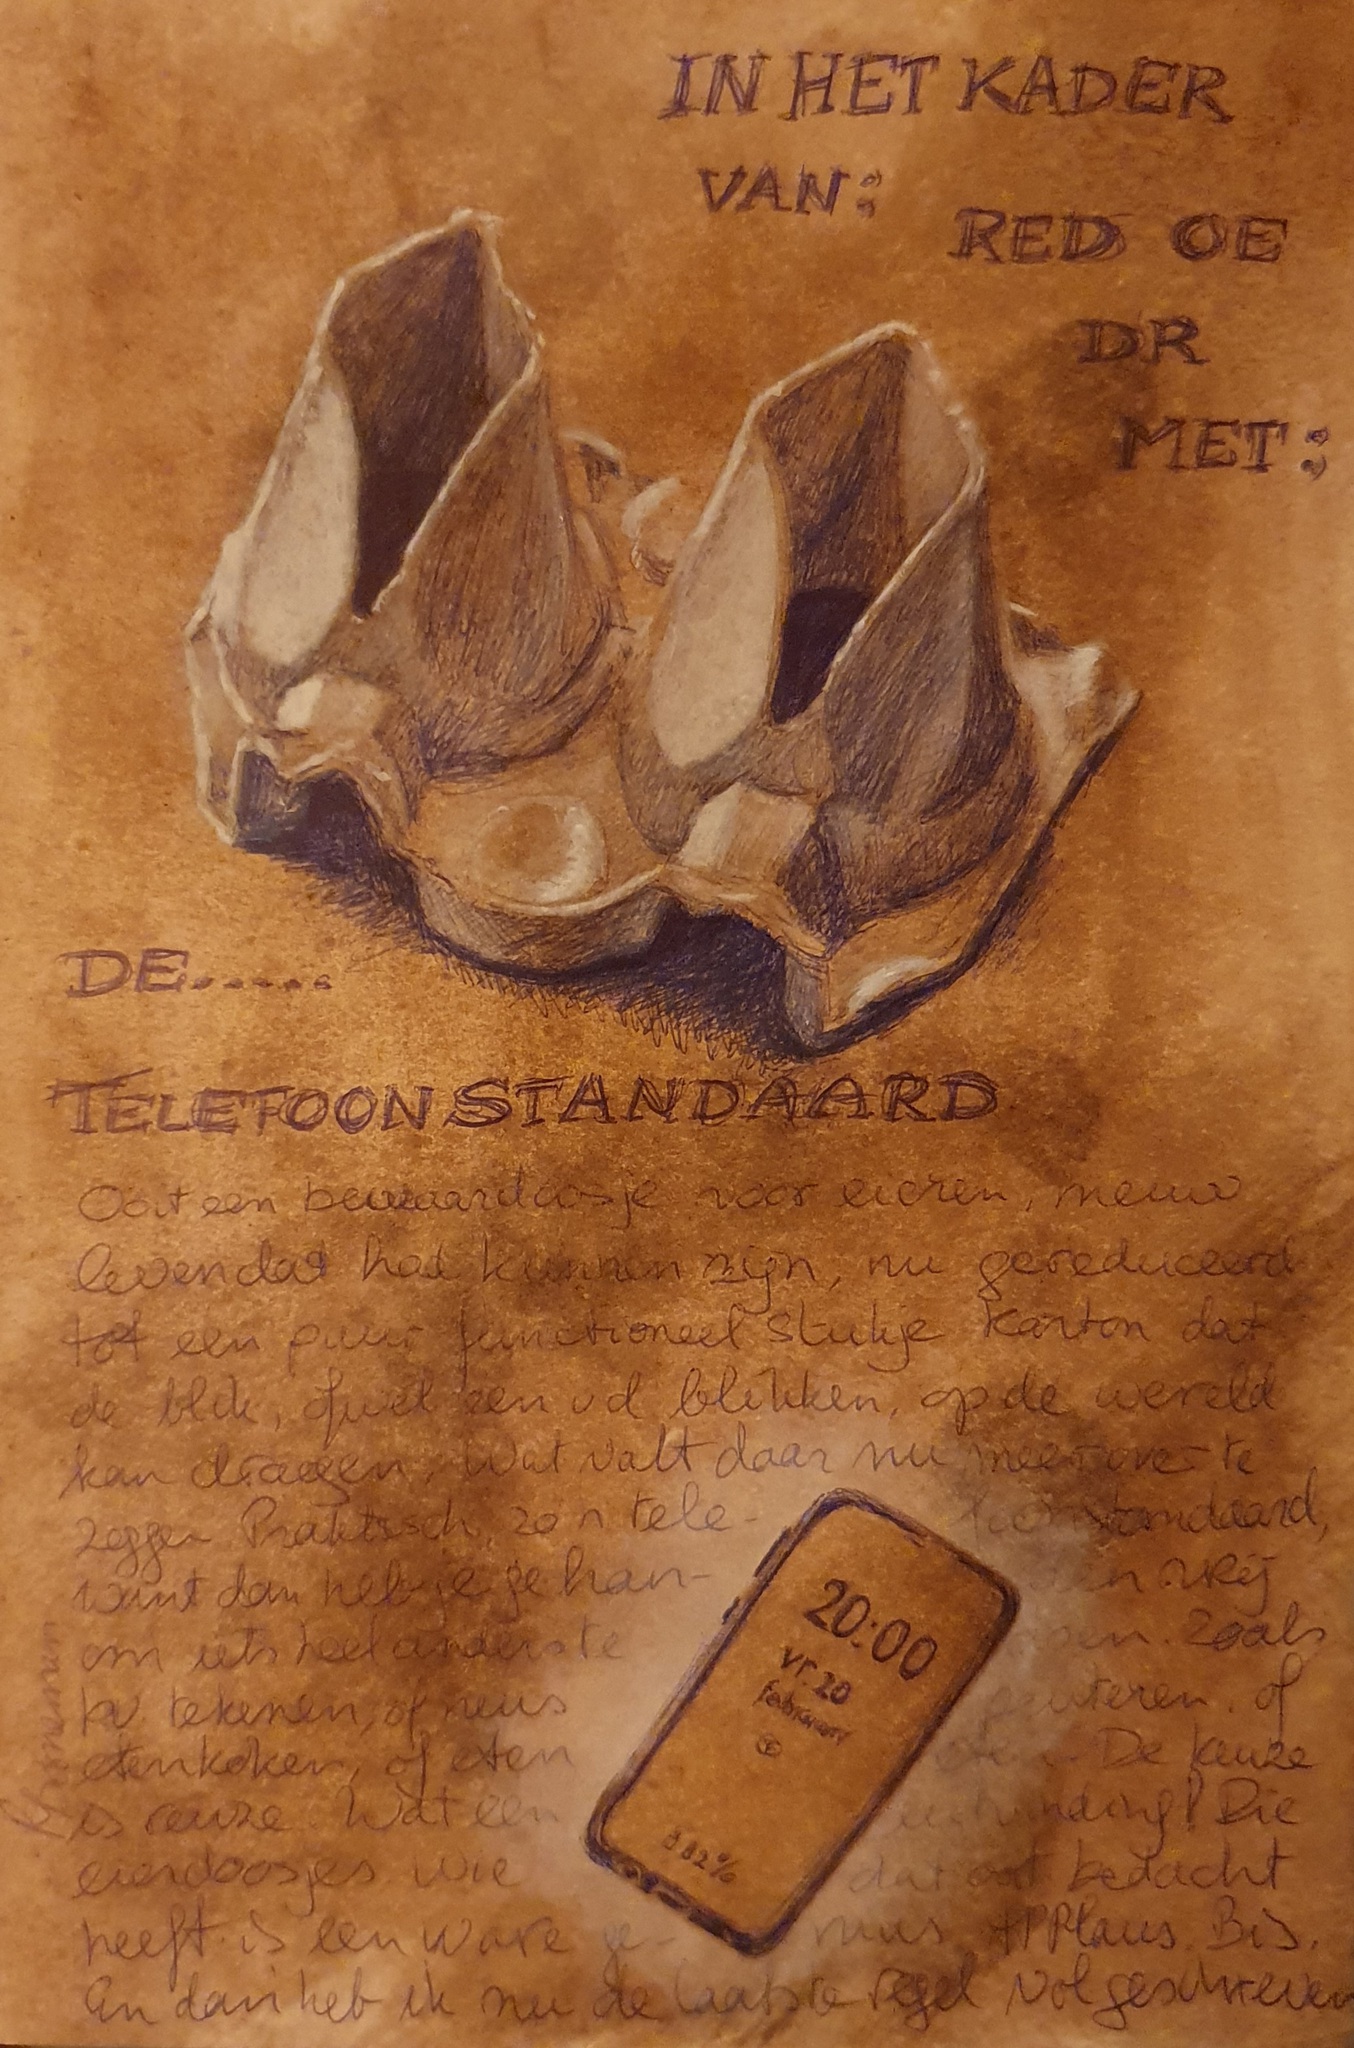 IN HET KADER
VAN:
RED OE
DR
MET:
DE.....
TELEFOONSTANDAARD
Ooit een bewaardoosje voor eieren, nieuw
leven dat had kunnen zijn, nu gereduceerd
tot een puur functioneel stukje karton dat
de blik, ofwel een vd blikken, op de wereld
kan dragen. Wat valt daar nu meer over te
zeggen Praktisch, zo n tele- foonstandaard,
want dan heb je je han- den vrij
om iets heel anders te Zoals
bv tekenen, of neus peuteren. of
eten koken, of eten De keuze
is reuze. Wat een uitvinding! Die
eierdoosjes. Wie dat ooit bedacht
heeft is een ware ge- nius APPlaus. Bis.
En dan heb ik nu de laatste regel volgeschreven
20:00
vr. 20
februari
82%